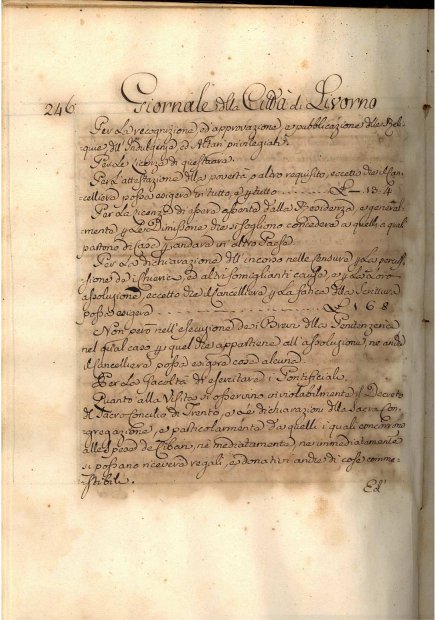 246 Giornale della Città di Livorno
Per la recognizione ed approvazione, e pubblicazione delle Reli-
quie dell'Indulgenze ed Altari privilegiati.
Per le licenze di questuare.
Per l'attestazione della povertà o altro requisito, eccetto che il Can-
celliere possa esigere in tutto, e per tutto ......... £ — 13. 4
Per la licenza di essere assente dalla Residenza, e general-
mente per le Dimissorie che si sogliono concedere a quelli, a quali
partono di casa per andare in altro Paese.
Per la dichiarazione dell'incorso nelle censure per la percus-
sione de i Chierici, ed altri somiglianti cause, e per la loro
assoluzione, eccetto che il Cancelliere per la fatica della Scrittura
possa esigere ................ £ 1 6 8
Non però nell'esecuzione de i Brevi della Penitenzeria
nel qual caso per quel che appartiene all'assoluzione, ne anche
il Cancelliere possa esigere cosa alcuna.
Per la facoltà d'esercitare i Pontificali.
Quanto alla Visita si osservino inviolabilmente il Decreto
del Sacro Concilio di Trento, e le dichiarazioni della Sacra Con-
gregazione, e particolarmente da quelli i quali concorrono
alle spese de Cibari, ne mediatamente, ne immediatamente
si possano ricevere regali, e donativi anche di cose comme-
stibili.
Ed